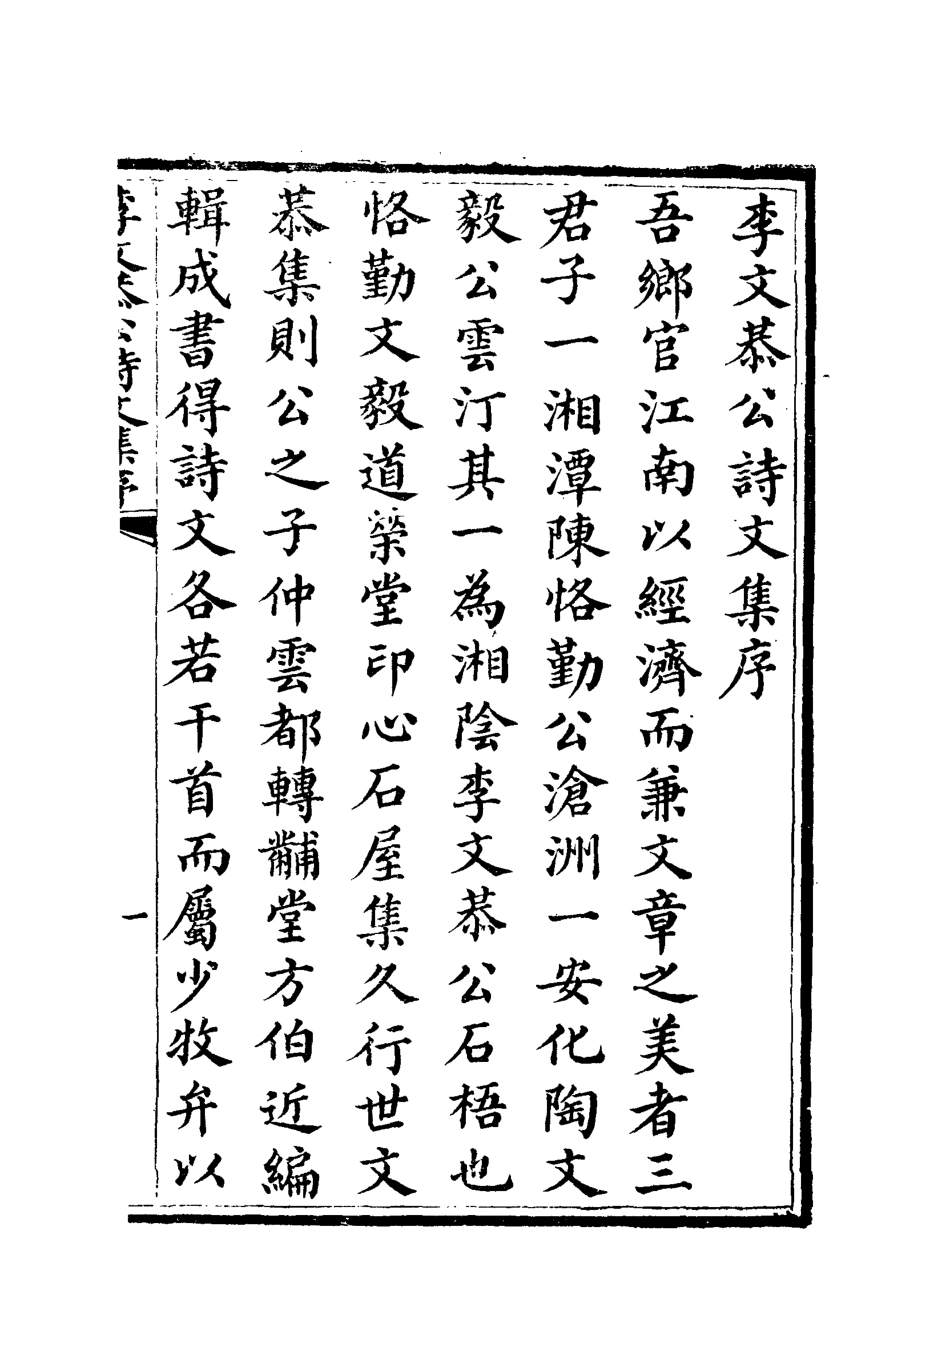 李文恭公詩文集序
吾鄉官江南以經濟而兼文章之美者三
君子一湘潭陳恪勤公滄洲一安化陶文
毅公雲汀其一為湘陰李文恭公石梧也
恪勤文毅道榮堂印心石屋集久行世文
恭集則公之子仲雲都轉黼堂方伯近編
輯成書得詩文各若干首而屬少牧弁以
李文恭公詩文集序
一